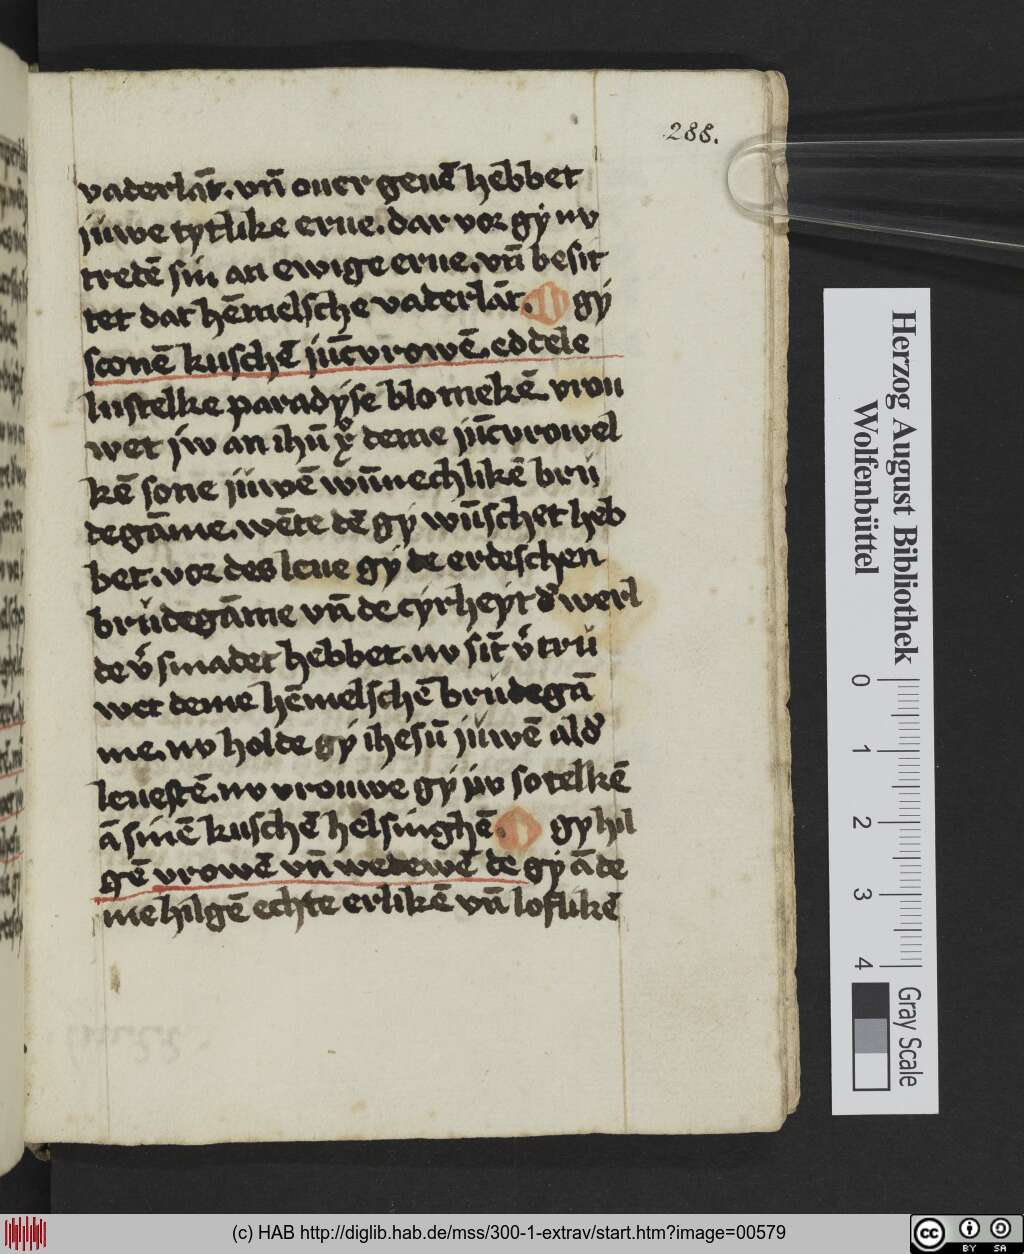 288.
vaderlāt. vn̄ ouer geuē hebbet
juwe tytlike erue. dar vor gy nv
tredē sin an ewige erue. vn̄ besit
tet dat hēmelsche vaderlāt. O gy
sconē kuschē jūcvrowē. eddele
lustelke paradyse blomekē. vrou
wet jw an ihū xp̄ deme jūcvrowel
kē sone juwē wūnechlikē bru
degāme. wēte dē gy wūschet heb
bet. vor des leue gy de erdeschen
brudegāme vn̄ de cyrheyt d' werl
de v'smadet hebbet. nv sīt v'tru
wet deme hēmelschē brudegā
me. nv holde gy ihesū juwē ald'
leuestē. nv vrouwe gy jw so telkē
ā sinē kuschē helsinghē. O gy hil
gē vrowē vn̄ wedewē de gy ā de
me hilgē echte erlikē vn̄ loflikē
Herzog August Bibliothek
Wolfenbüttel
0 1 2 3 4
Gray Scale
(c) HAB http://diglib.hab.de/mss/300-1-extrav/start.htm?image=00579
cc BY SA